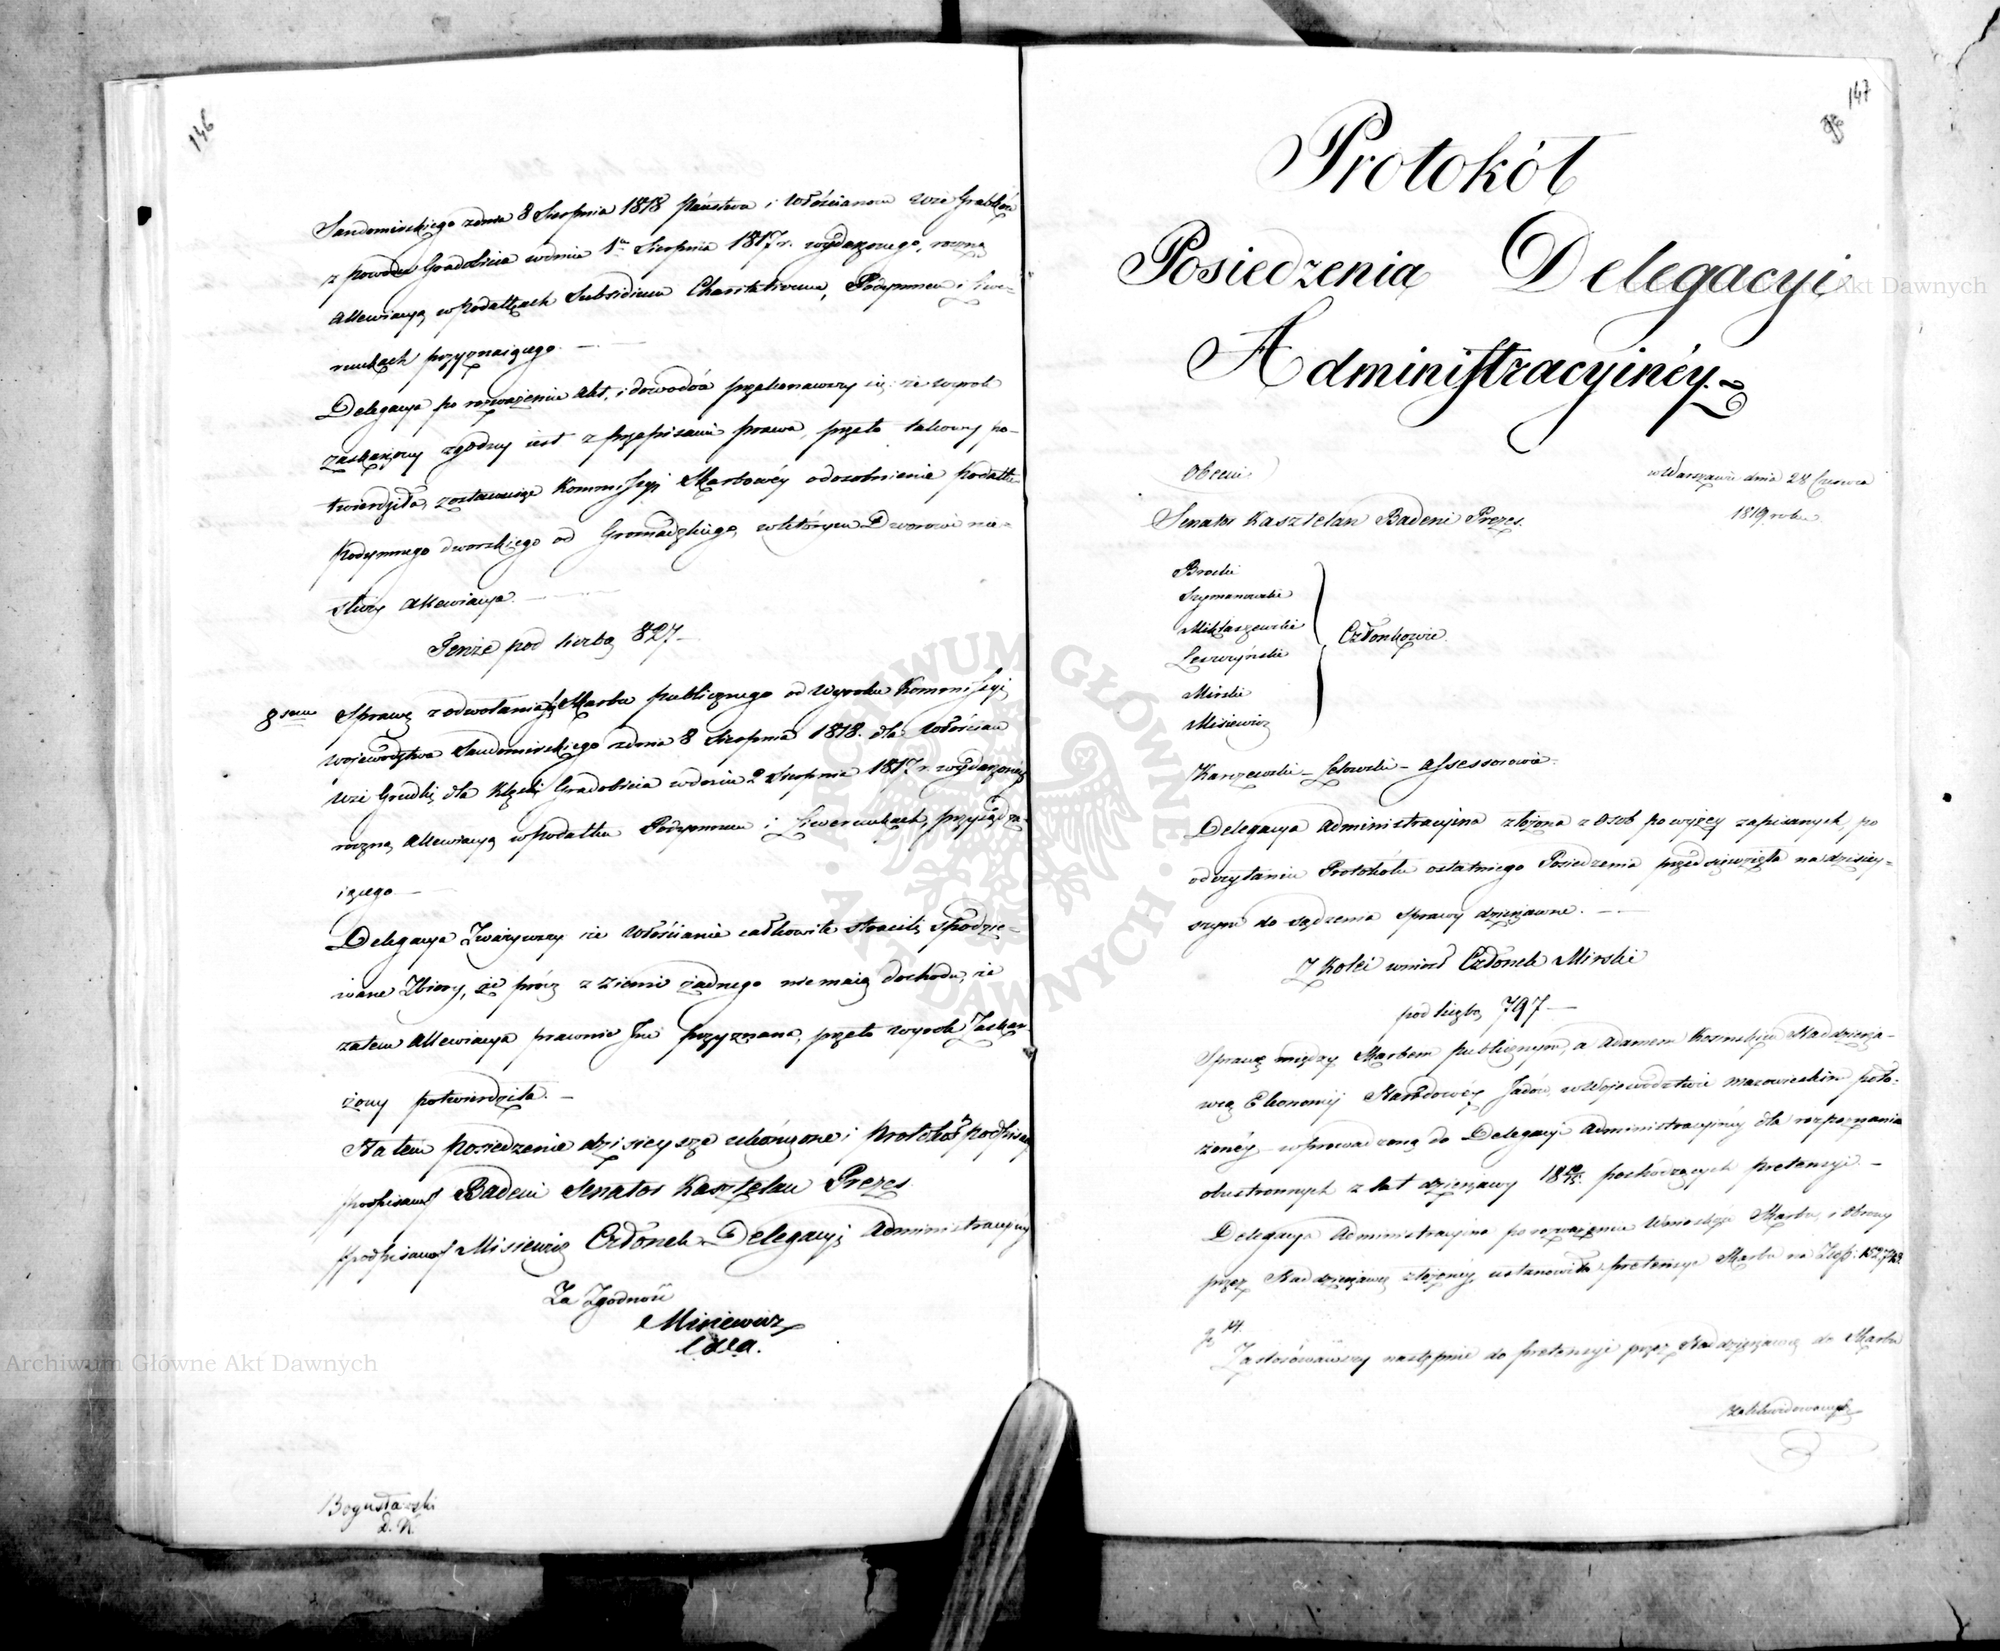 146
Sandomirskiego z dnia 8 Sierpnia 1818 Państwa i Włościanom Wsie
z powodu Gradobicia w dniu 1º Sierpnia 1817 r. wydarzonego, roczną
allewiacyą w podatkach Subsidium Charitativum, Podymnem i Liwe-
runkach przyznaiącego.
Delegacya po rozważeniu Akt, i dowodów przekonawszy się, że wyrok
zaskarżony zgodny iest z przepisami prawa, przeto takowy po-
twierdziła, zostawuiąc Kommissyi Skarbowéy odosobnienie Podatku
Podymnego dworskiego od Gromadzkiego, w którym Dworowi nie-
służy allewiacya.
Tenże pod liczbą 827
8me Sprawę z odwołania się Skarbu publicznego od Wyroku Kommissyi
Woiewództwa Sandomirskiego z dnia 8 Sierpnia 1818. dla Włościan
Wsi dla Klęski Gradobicia w dniu 2 Sierpnia 1817 r. wydarzonéy
roczną allewiacyą w Podatku Podymnem i Liwerunkach, przysądza-
iącego
Delegacya Zważywszy że Włościanie całkowite stracili spodzie-
wane Zbiory, że prócz z ziemi żadnego nie maią dochodu, że
zatem allewiacya prawnie Im przyznana, przeto wyrok Zaskar-
żony potwierdziła.
Na tem posiedzenie dzisieysze ukończone i protokół podpisany
(podpisano) Badeni Senator Kasztelan Prezes.
(podpisano) Misiewicz Członek Delegacyi Administracyiney
Za Zgodność
Misiewicz
Bogusławski
D. K.
147
Protokół
Posiedzenia Delegacyi
Administracyinéy.
Obecni
w Warszawie dnia 28 Czerwca
1819 roku.
Senator Kasztelan Badeni Prezes.
Brocki
Szymanowski
Miklaszewski
Leszczyński
Mirski
Misiewicz
Członkowie.
Karczewski - Łełowski - Assessorowie.
Delegacya Administracyina złożona z Osob powyżey zapisanych, po
odczytaniu Protokółu ostatniego Posiedzenia przedsięwzięła na dzisiey-
szym do sądzenia Sprawy dzierżawne.
Z Kolei wniosł Członek Mirski
pod liczbą 797
Sprawę między Skarbem publicznym, a Adamem Naddzierża-
wcą Ekonomii Narodowéy Jadów, w Woiewództwie Mazowieckim poło-
żonéy wprowadzoną do Delegacyi Administracyinéy dla rozpoznania
obustronnych z lat dzierżawy pochodzących pretensyi.
Delegacya Administracyina po rozważeniu Wniosków Skarbu, i Obrony
przez Naddzierżawcę złożonéy, ustanowiła pretensye Skarbu na Złp: 152,743.
gr 14.
Zastosowawszy następnie do pretensyi przez Naddzierżawcę do Skarbu
zalikwidowanych
Archiwum Główne Akt Dawnych